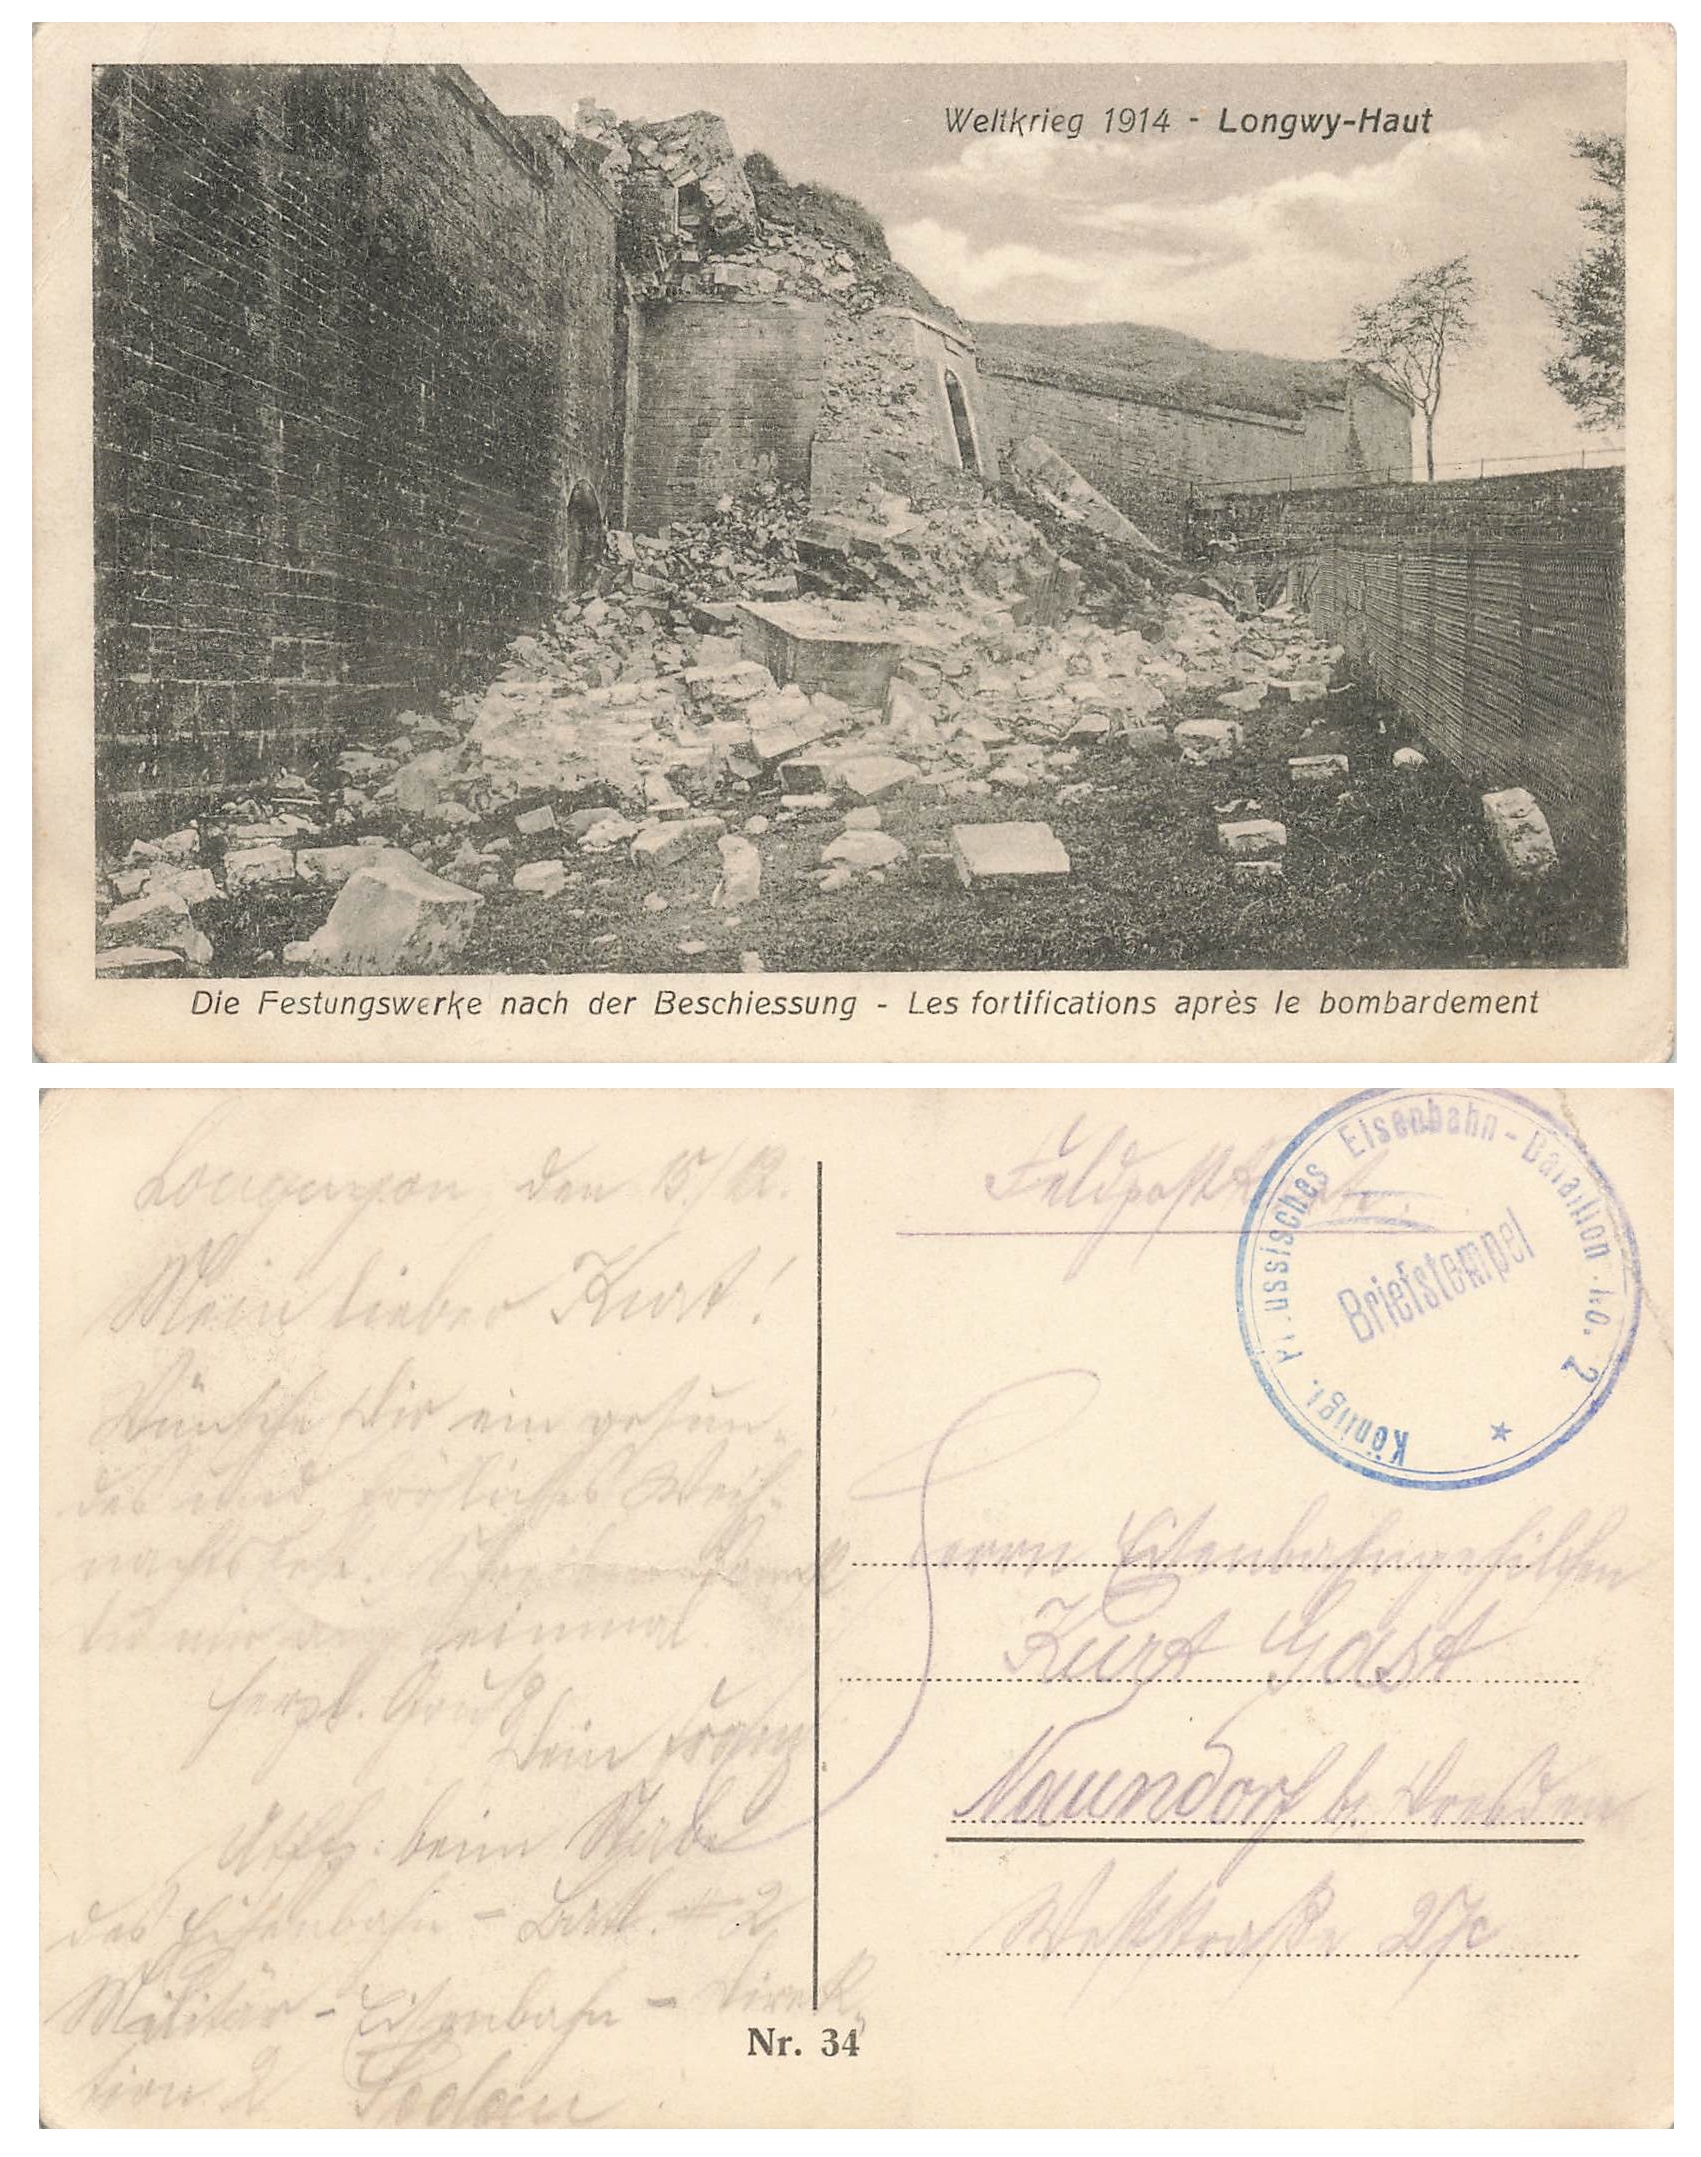 Weltkrieg 1914 - Longwy-Haut
Die Festungswerke nach der Beschiessung - Les fortifications après le bombardement
Longuyon, den 15/12.
Mein lieber Kurt!
Wünsche Dir ein gesun-
des und fröhliches Weih-
nachtsfest. Schreiben
Du mir einmal.
herzl. Gruß
Dein Franz.
Uffz. beim Stabe
des Eisenbahn - Batl. # 2
Militär - Eisenbahn - Direk-
tion 2 Sedan
Feldpost
Königl. Preussisches Eisenbahn-Bataillon No. 2
Briefstempel
Herrn Eisenbahngehilfen
Kurt Gast
Naundorf b. Dresden
Weststraße 27c
Nr. 34